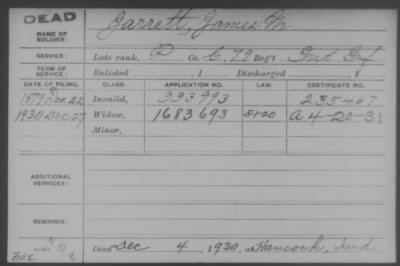 DEAD
NAME OF SOLDIER: Garrett, James M
SERVICE: Late rank, P Co. C, 79 Reg't Ind Inf
TERM OF SERVICE: Enlisted , 1 Discharged , 1
DATE OF FILING. CLASS. APPLICATION NO. LAW. CERTIFICATE NO.
1879 Dec 22 Invalid, 333993 235467
1930 Dec 27 Widow, 1683693 5/1/20 A 4-20-31
Minor,
ADDITIONAL SERVICES:
REMARKS:
Died Dec 4, 1930, at Hancock, Ind